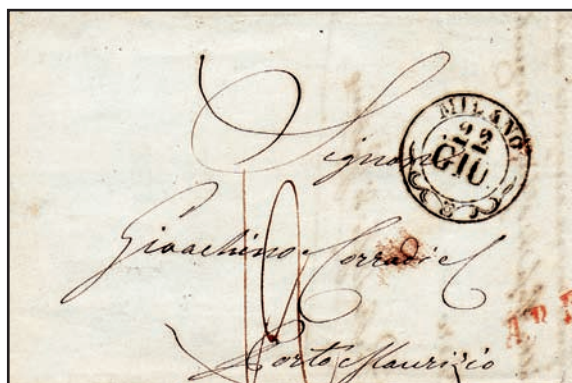 MILANO
22
GIU
Signori
Gioachino Corradi e C
Porto Maurizio